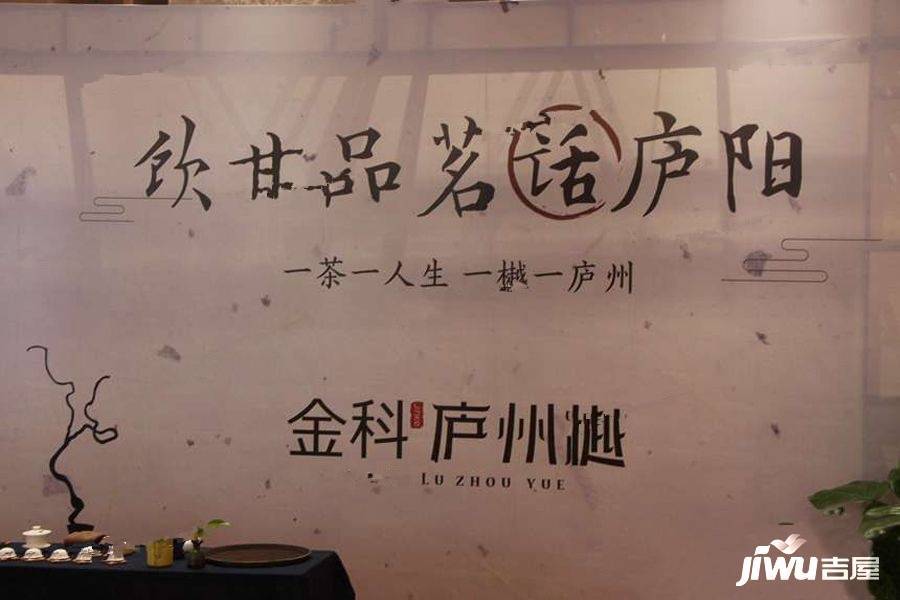 饮甘品茗话庐阳
一茶一人生 一樾一庐州
金科 庐州樾
LU ZHOU YUE
JIWU吉屋